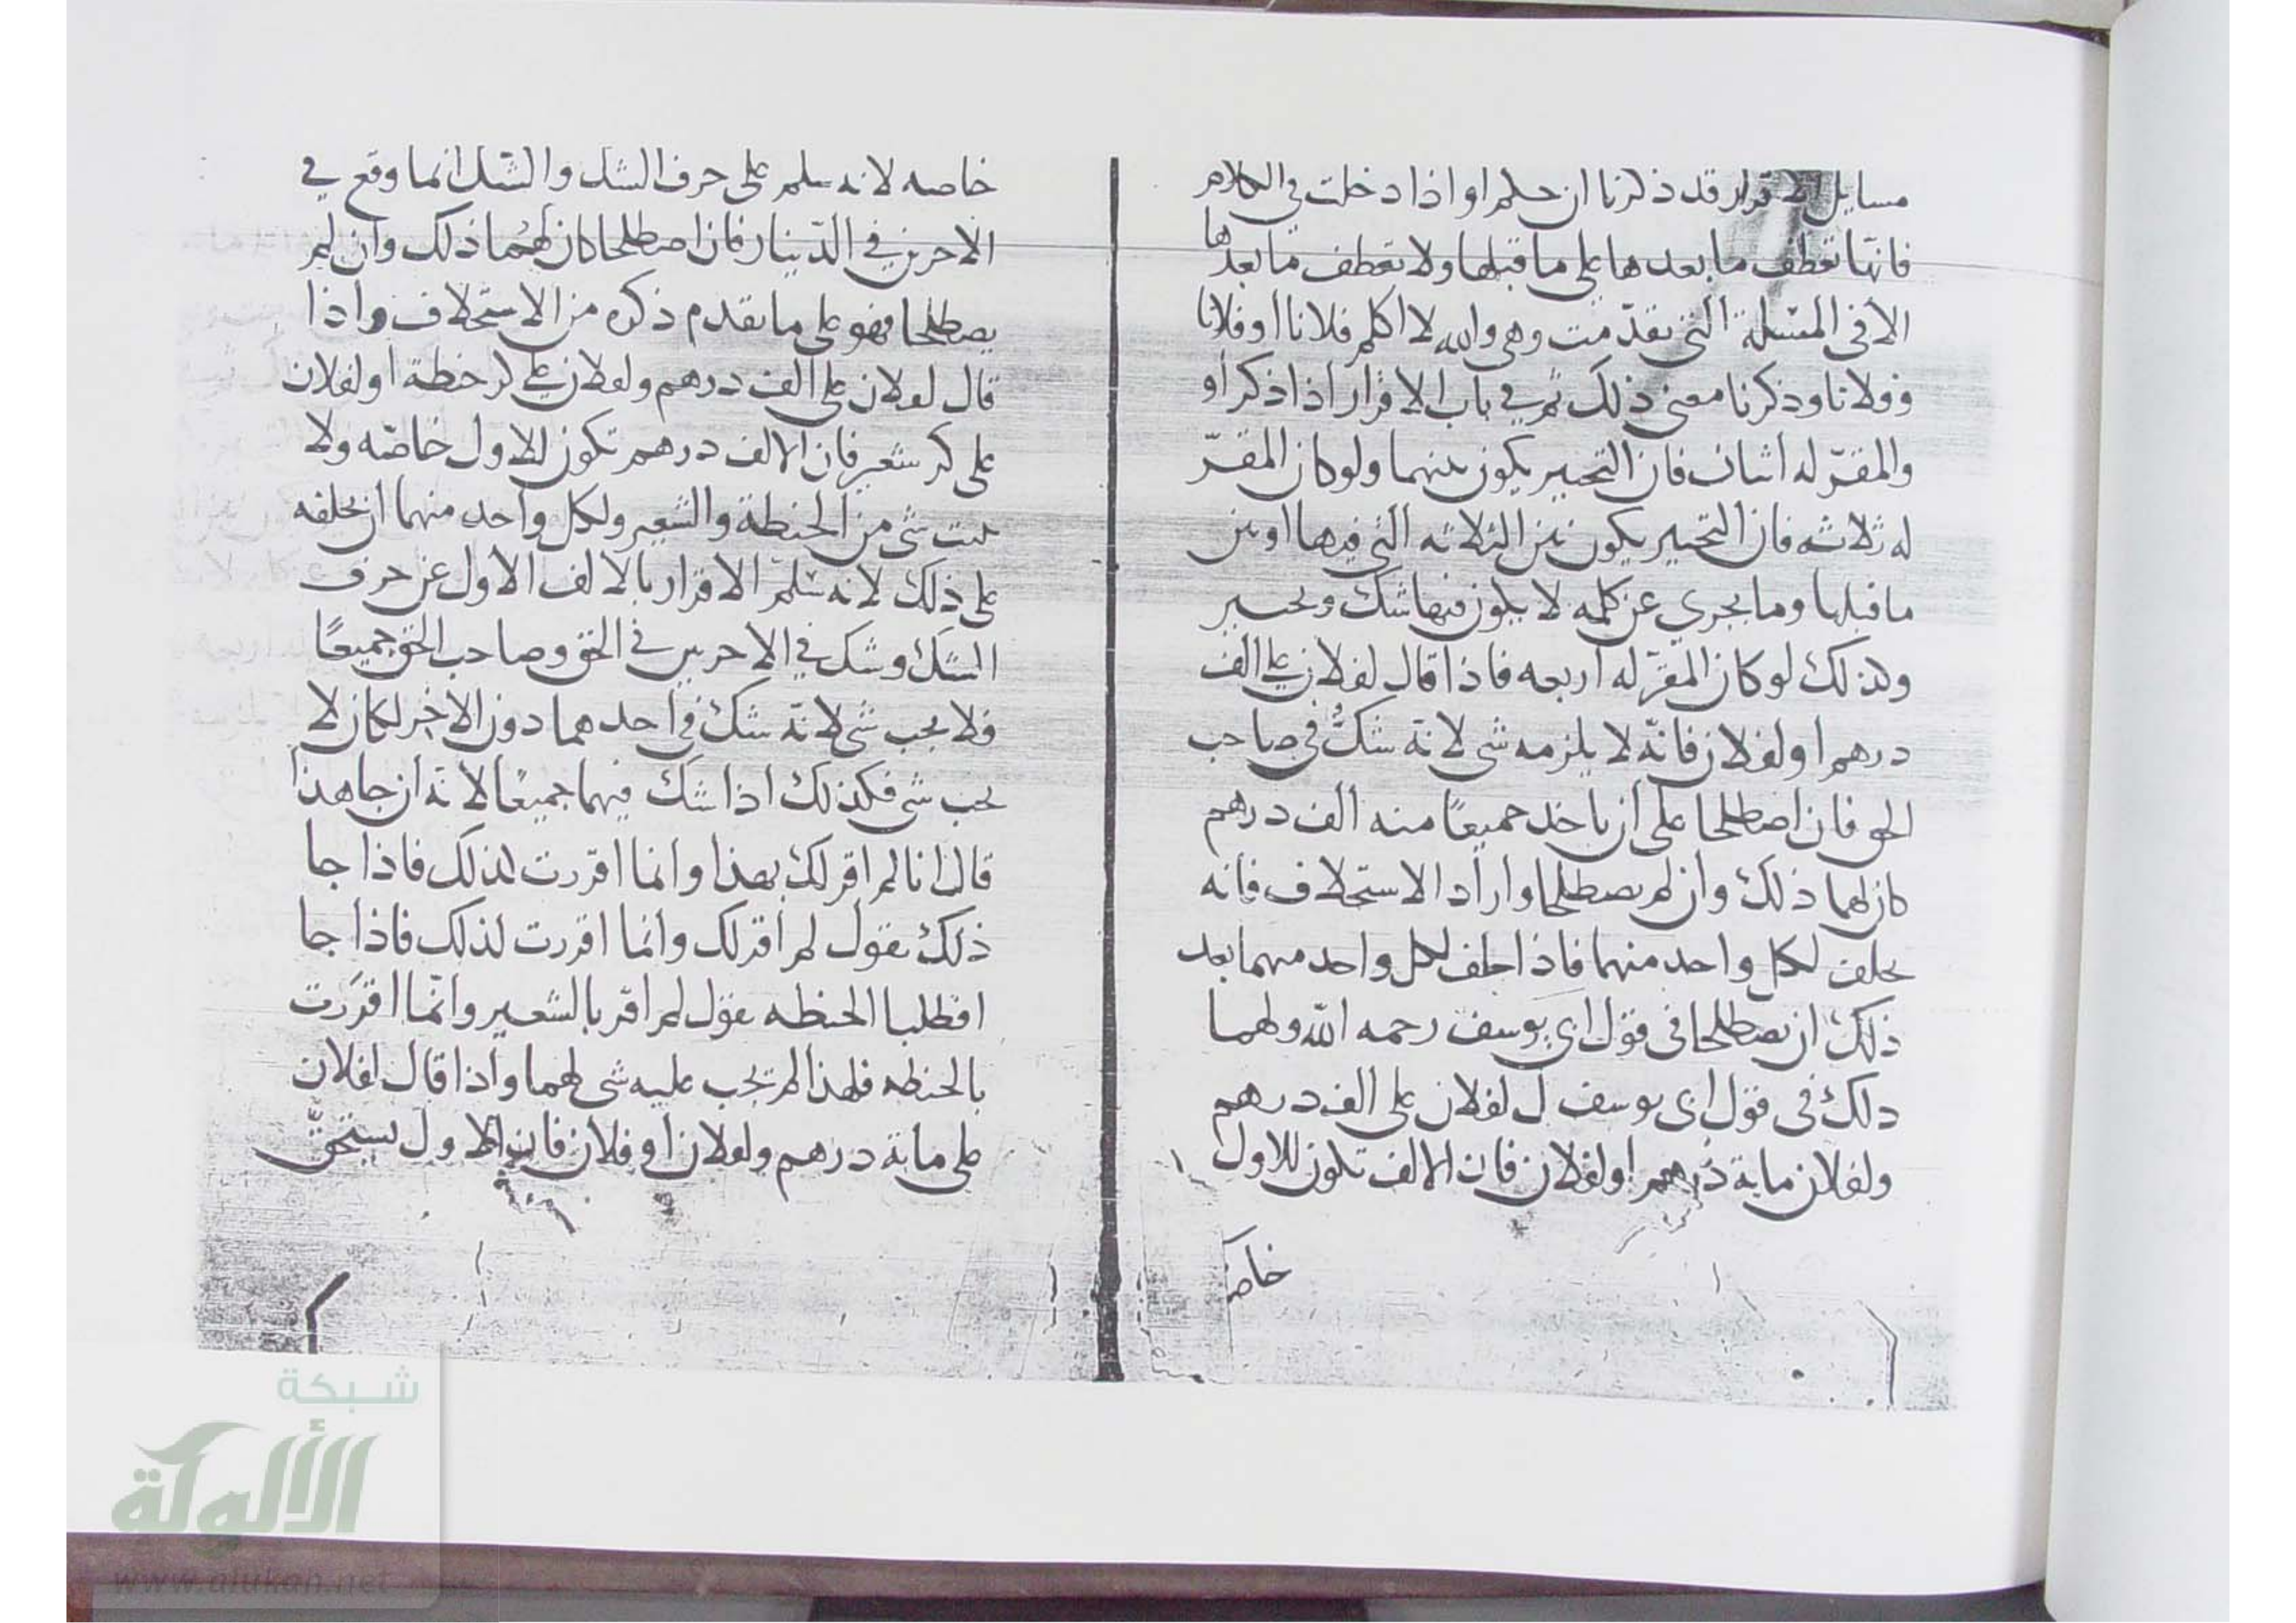 مسايل الاقرار قد ذكرنا ان حكم او اذا دخلت في الكلام
فانها تعطف ما بعدها على ما قبلها ولا تعطف ما بعدها
الا فى المسئلة التى تقدّمت وهى والله لا اكلم فلانا او فلانا
وفلانا وذكرنا معنى ذلك ثم في باب الاقرار اذا ذكر او
والمقرّ له اثنان فان التخيير يكون بينهما ولو كان المقرّ
له ثلاثه فان التخيير يكون بين الثلاثه التي فيها او بين
ما قبلها وما يجرى عن كلمه لا يكون فيها شك وتخيير
وكذلك لو كان المقرّ له اربعه فاذا قال لفلان على الف
درهم او لفلان فانّه لا يلزمه شى لانه شكّ فى صاحب
الحق فان اصطلحا على ان ياخذ جميعًا منه الف درهم
كان لهما ذلك وان لم يصطلحا واراد الاستحلاف فانه
يحلف لكل واحد منهما فاذا حلف لكل واحد منهما بعد
ذلك ان يصطلحا فى قول ابى يوسف رحمه الله ولهما
ذلك فى قول ابى يوسف ل لفلان على الف درهم
ولفلان ماية درهم او لفلان فان الالف تكون للاول
خاصه
خاصه لانه سلم على حرف الشك والشك انما وقع في
الاخرين في الدّينار فان اصطلحا كان لهُما ذلك وان لم
يصطلحا فهو على ما تقدم ذكره من الاستحلاف واذا
قال لفلان على الف درهم ولفلان على كر حنطة او لفلان
على كر شعير فان الالف درهم تكون للاول خاصّه ولا
يثبت شى من الحنطة والشعير ولكل واحد منهما ان يحلفه
على ذلك لانه سلّم الاقرار بالالف الاول عن حرف
الشك وشك في الاخرين في الحق وصاحب الحق جميعًا
فلا يجب شى لانّه شك فى احدهما دون الاخر لكان لا
يجب شى فكذلك اذا شك فيهما جميعًا لانّه ان جا هذا
قال انا لم اقر لك بهذا وانما اقررت لذلك فاذا جا
ذلك يقول لم اقر لك وانما اقررت لذلك فاذا جا
افطلبا الحنطه يقول لم اقر بالشعير وانّما اقرَرت
بالحنطه فلهذا لم تجب عليه شى لهما واذا قال لفلان
على ماية درهم ولفلان او فلان فان الاول يستحقّ
شبكة
الألوكة
www.alukah.net